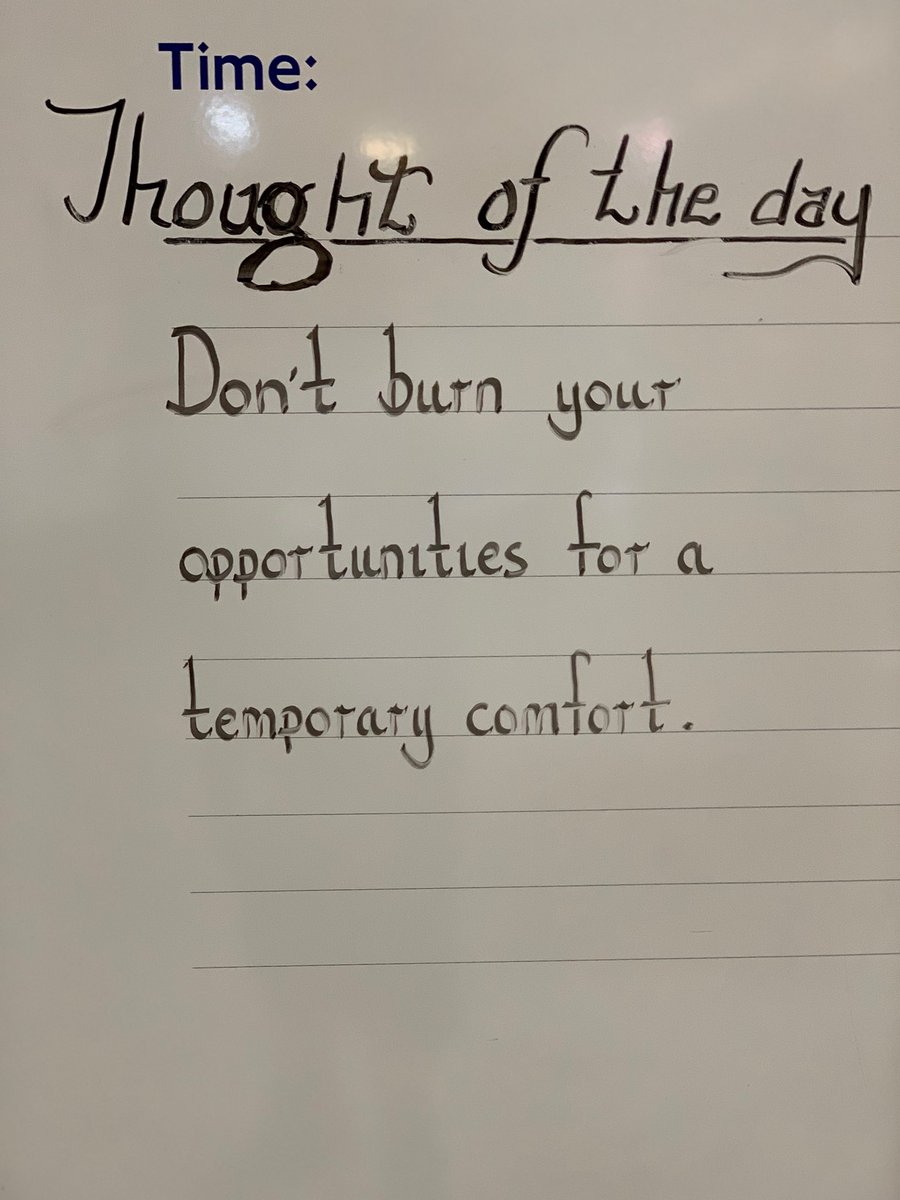 Time:
Thought of the day
Don't burn your
opportunities for a
temporary comfort.